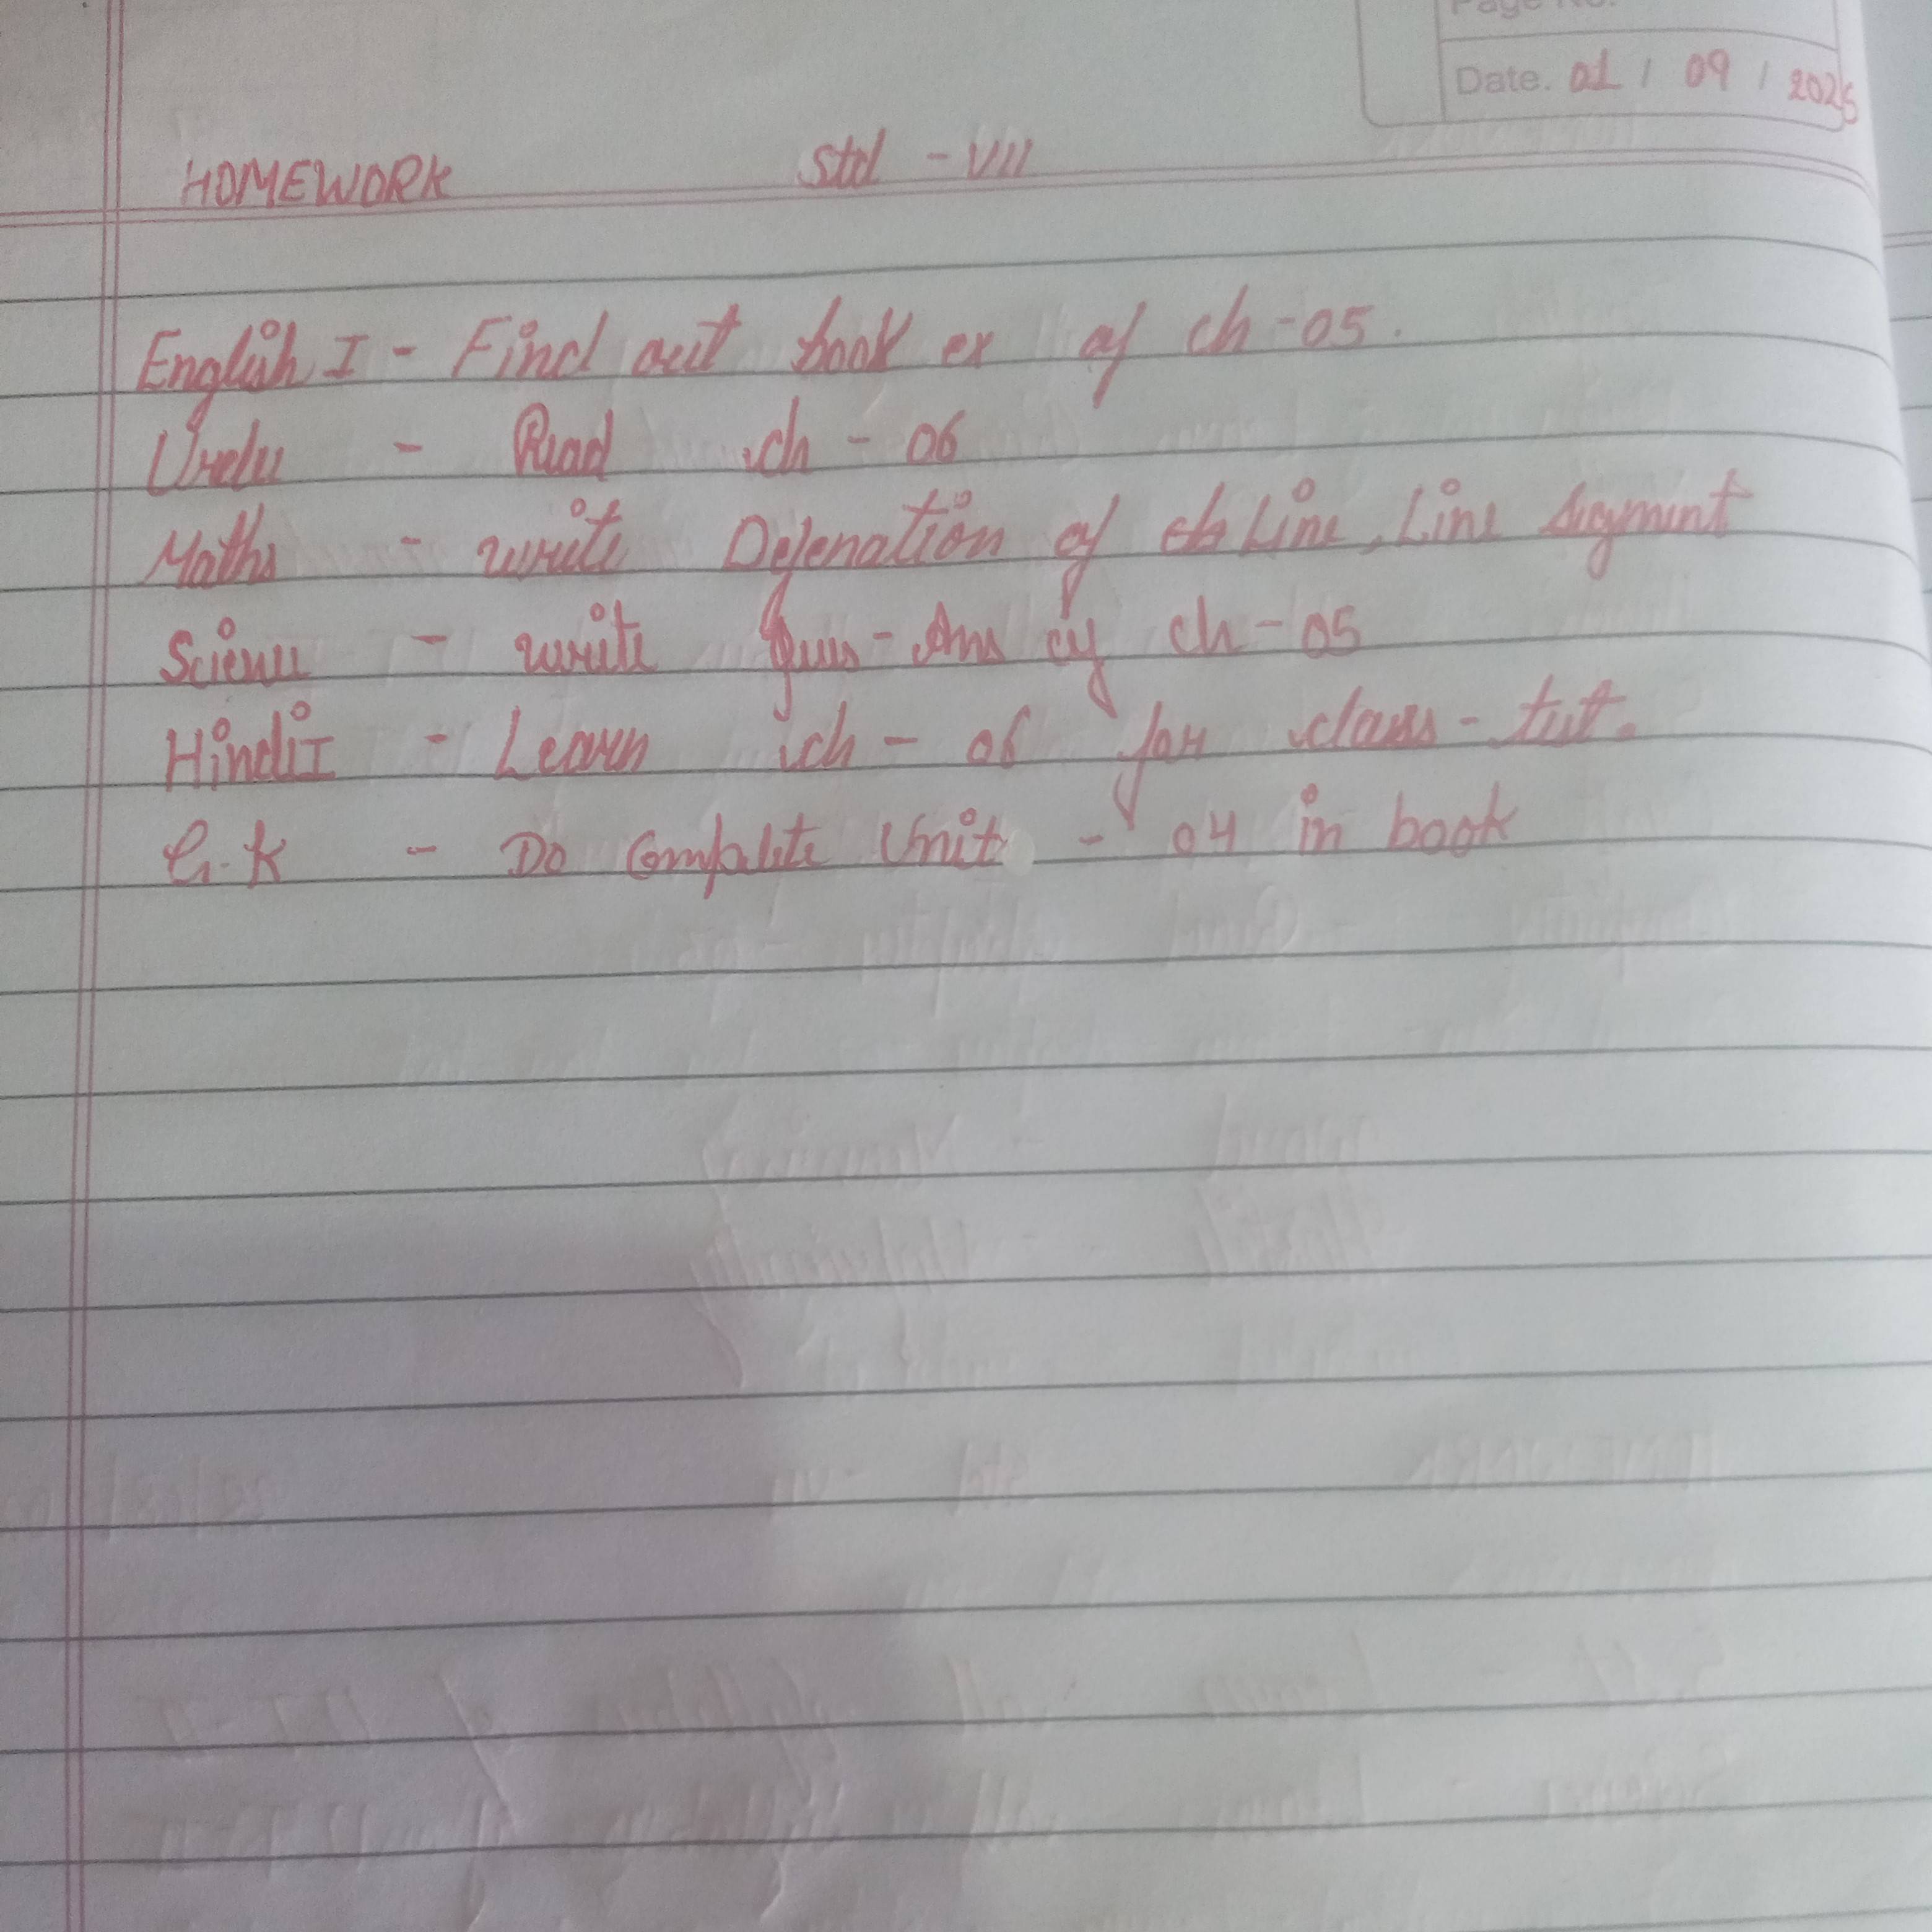 Page No.
Date. 01 / 09 / 2025
HOMEWORK Std - VII
English I - Find out book ex of ch - 05.
Urdu - Read ch - 06
Maths - write Defenation of Line, Line Segment
Science - write Ques - Ans of ch - 05
Hindi I - Learn ch - 06 for class - test.
G.K - Do Complete Unit - 04 in book